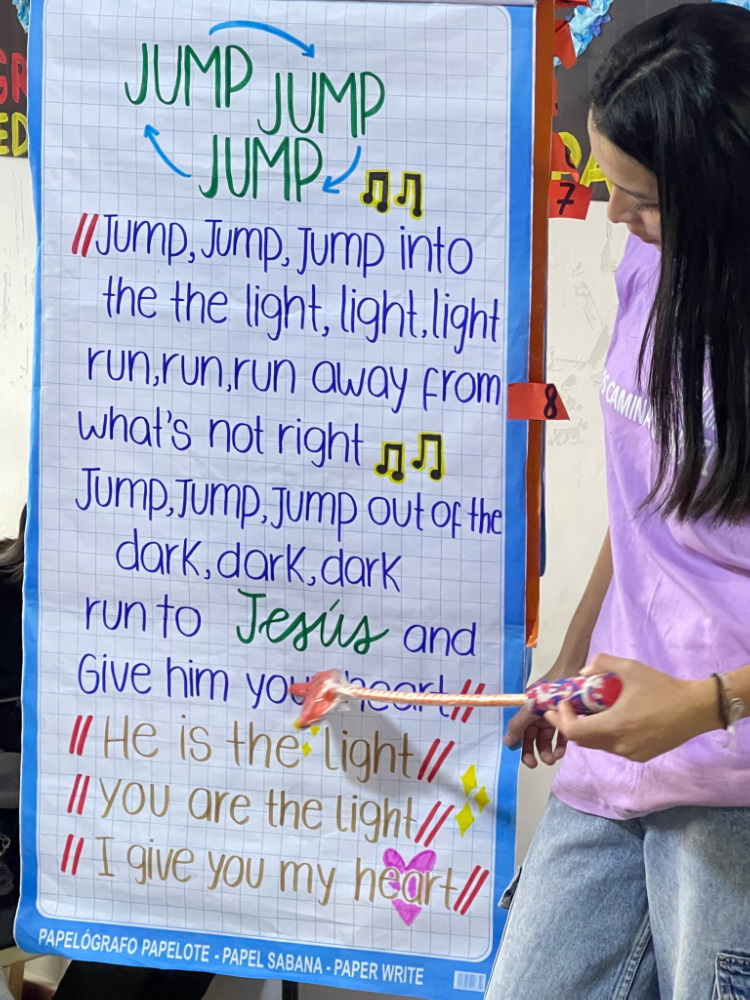 JUMP JUMP
JUMP
//Jump, Jump, Jump into
the the light, light, light
run, run, run away from
what's not right
Jump, Jump, Jump out of the
dark, dark, dark
run to Jesús and
Give him heart//
//He is the light//
//you are the light//
//I give you my heart//
PAPELÓGRAFO PAPELOTE - PAPEL SABANA - PAPER WRITE
7
8